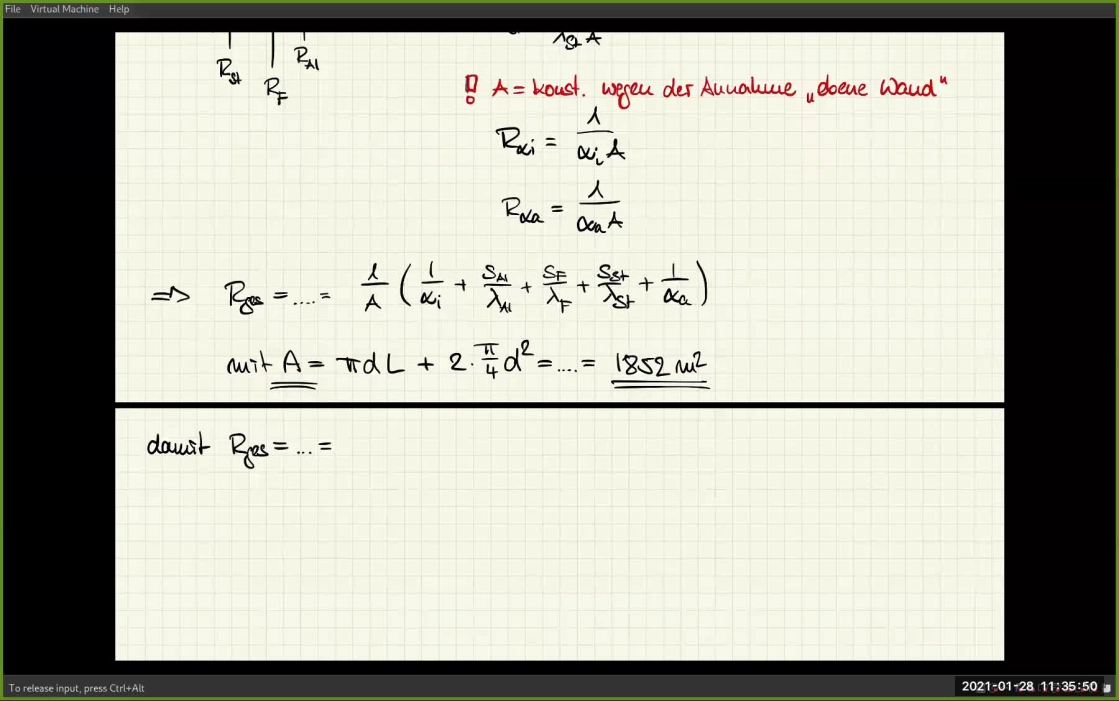 File Virtual Machine Help
λSt A
RSt
RAl
RF
! A = konst. wegen der Annahme „ebene Wand“
Rαi = 1 / αi A
Rαa = 1 / αa A
⇒ Rges = .... = 1/A ( 1/αi + SAl/λAl + SF/λF + SSt/λSt + 1/αa )
mit A = π d L + 2 · π/4 d² = .... = 1852 m²
damit Rges = ... =
To release input, press Ctrl+Alt
2021-01-28 11:35:50